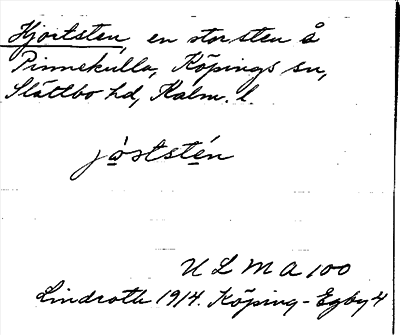 Hjortsten, en stor sten å
Pinnekulla, Köpings sn,
Slättbo hd, Kalm. l.
jo̲ststén
U L M A 100
Lindroth 1914. Köping-Egby 4